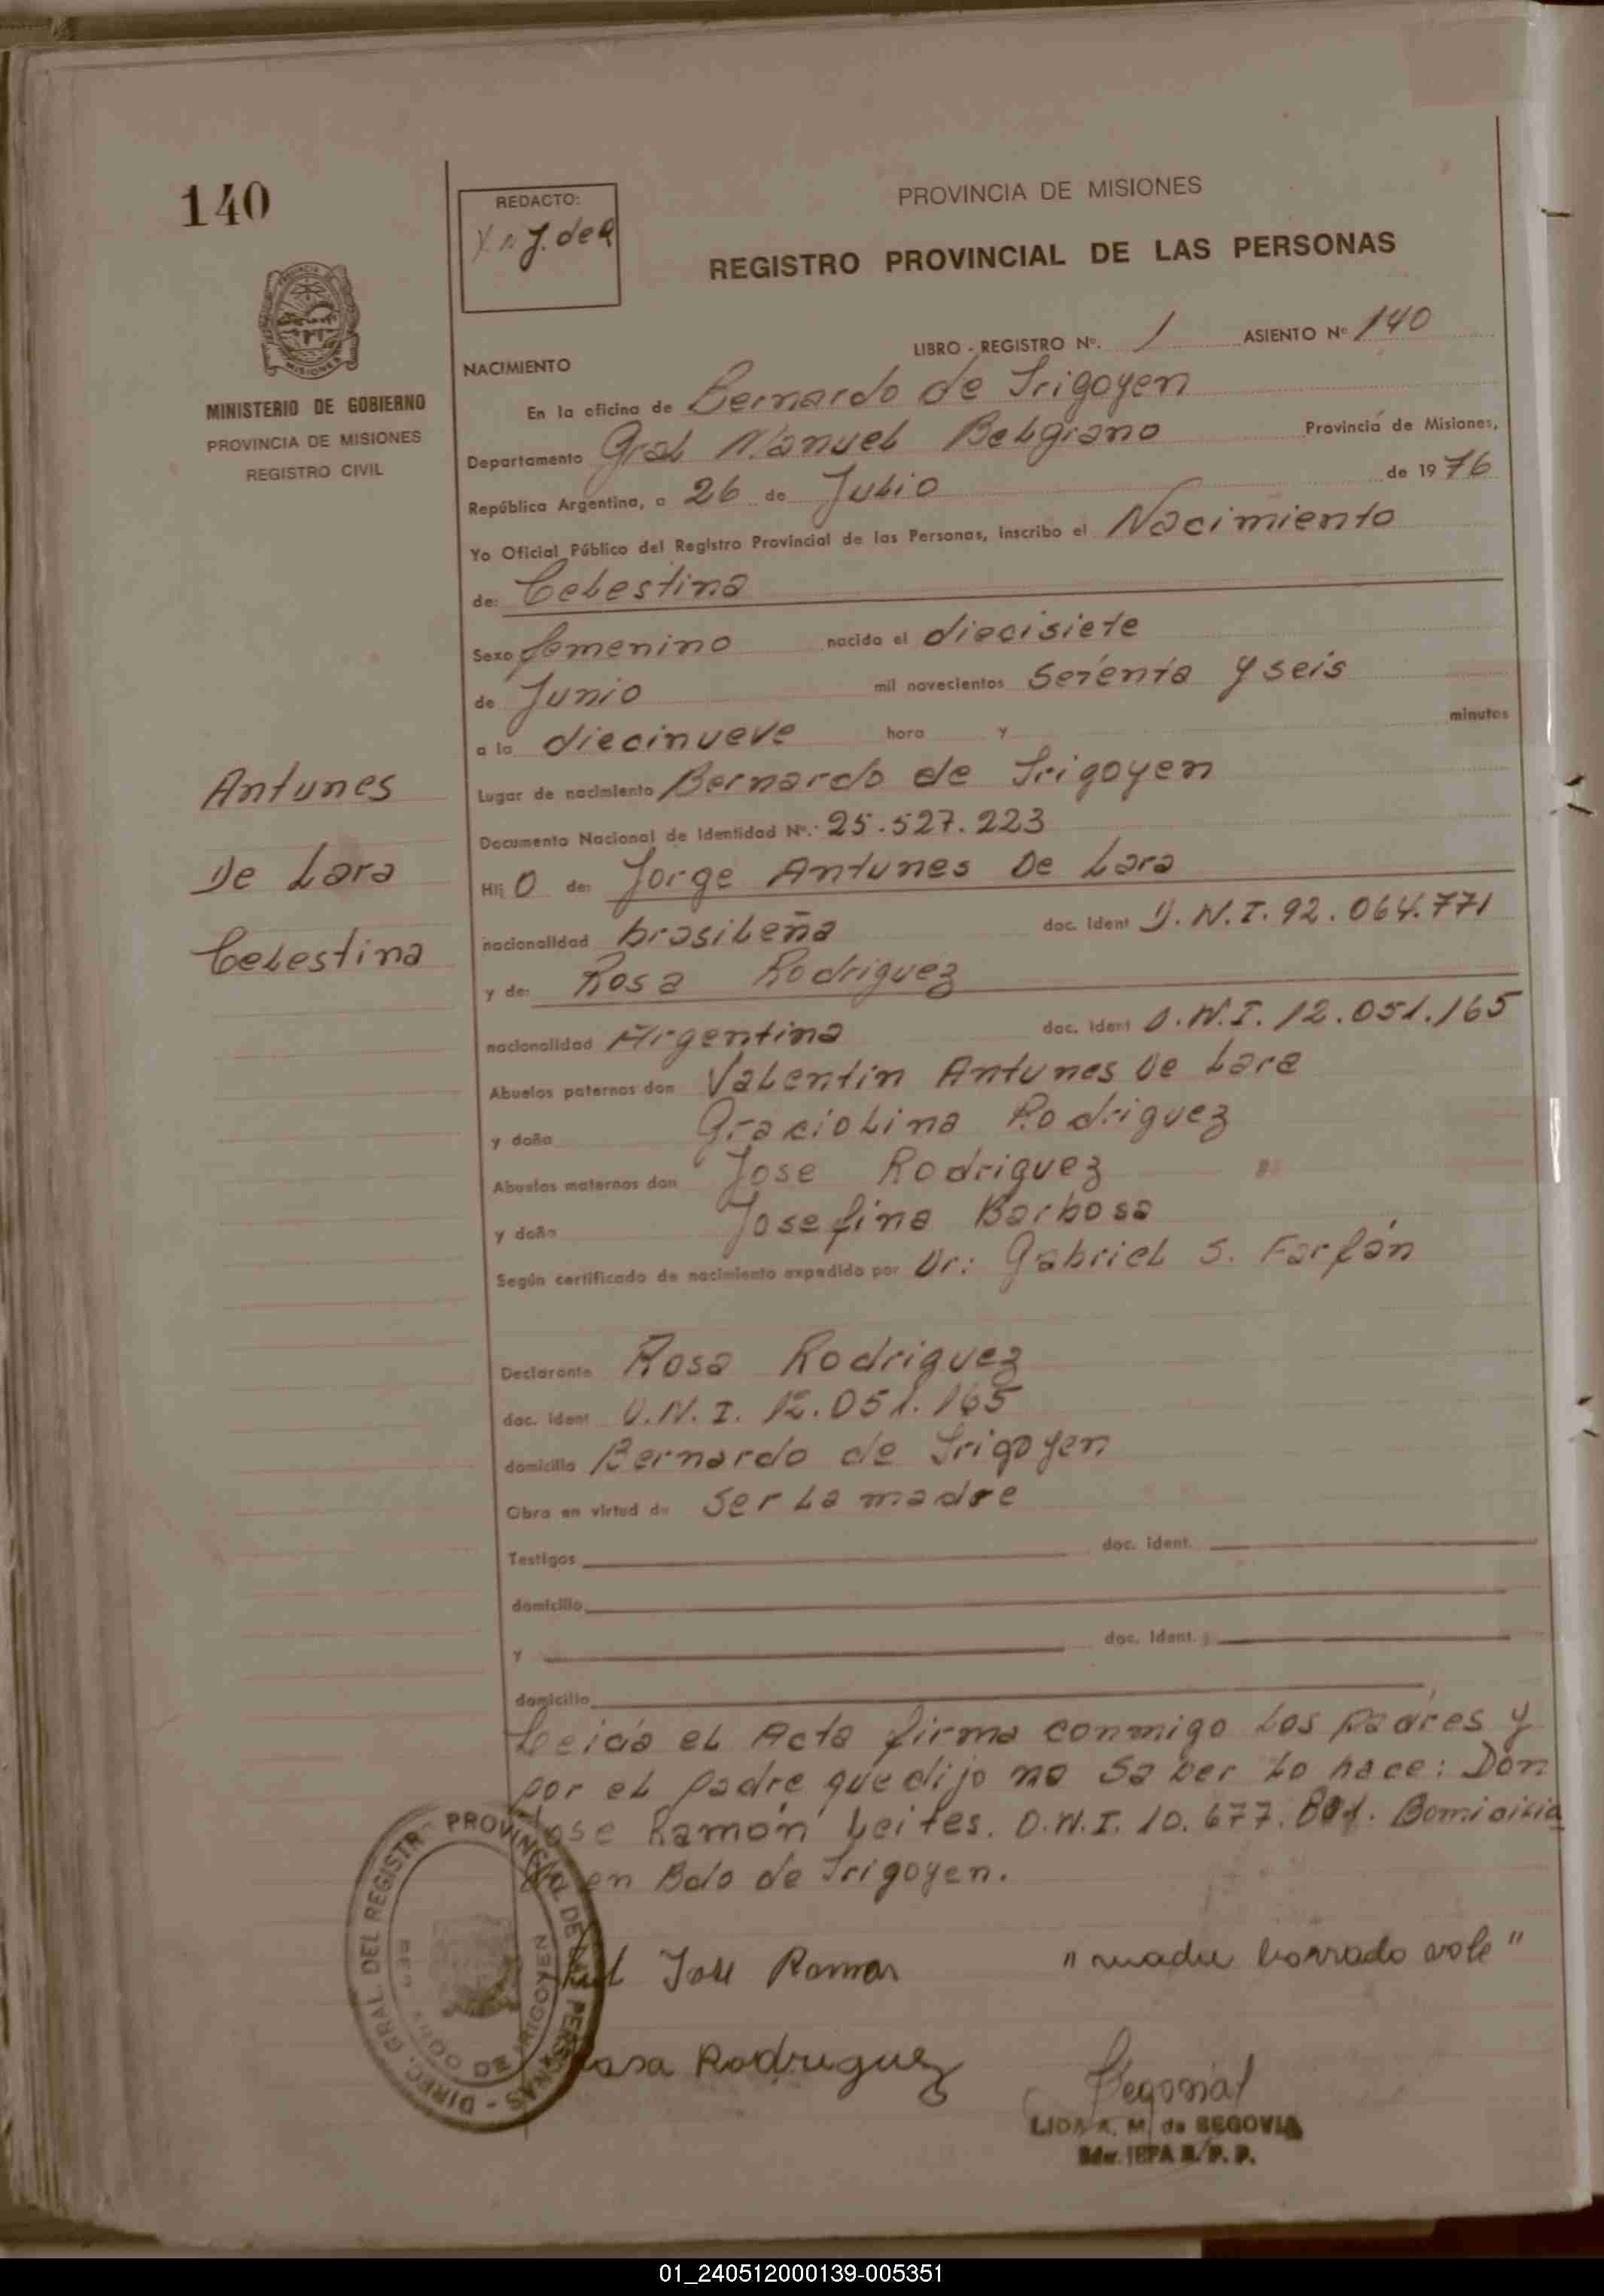 140
REDACTO:
PROVINCIA DE MISIONES
REGISTRO PROVINCIAL DE LAS PERSONAS
MISIONES
MINISTERIO DE GOBIERNO
PROVINCIA DE MISIONES
REGISTRO CIVIL
LIBRO - REGISTRO Nº. 1 ASIENTO Nº 140
NACIMIENTO
En la oficina de Bernardo de Irigoyen
Departamento Gral Manuel Belgrano Provincia de Misiones,
República Argentina, a 26 de Julio de 1976
Yo Oficial Público del Registro Provincial de las Personas, inscribo el Nacimiento
de: Celestina
Sexo femenino nacido el diecisiete
de Junio mil novecientos setenta y seis
a la diecinueve hora y minutos
Lugar de nacimiento Bernardo de Irigoyen
Documento Nacional de Identidad Nº. 25.527.223
Antunes
De Lara
Celestina
Hij O de: Jorge Antunes De Lara
nacionalidad brasileña doc. Ident D.N.I. 92.064.771
y de: Rosa Rodriguez
nacionalidad Argentina doc. Ident D.N.I. 12.051.165
Abuelos paternos don Valentin Antunes De Lara
y doña Graciolina Rodriguez
Abuelos maternos don Jose Rodriguez
y doña Josefina Barbosa
Según certificado de nacimiento expedido por Dr: Gabriel S. Farfán
Declarante Rosa Rodriguez
doc. Ident D.N.I. 12.051.165
domicilio Bernardo de Irigoyen
Obra en virtud de ser la madre
Testigos doc. ident.
domicilio
y doc. Ident.
domicilio
Leida el Acta firma conmigo los padres y
por el padre que dijo no saber lo hace: Don
Jose Ramón Leites. D.N.I. 10.677. Domicilia
do en Bdo de Irigoyen.
DIREC. GRAL DEL REGISTR PROVINCIAL DE LAS PERSONAS
IRIGOYEN
José Ramon
"madre borrado vale"
Rosa Rodriguez
LIDA R. M. de SEGOVIA
01_240512000139-005351